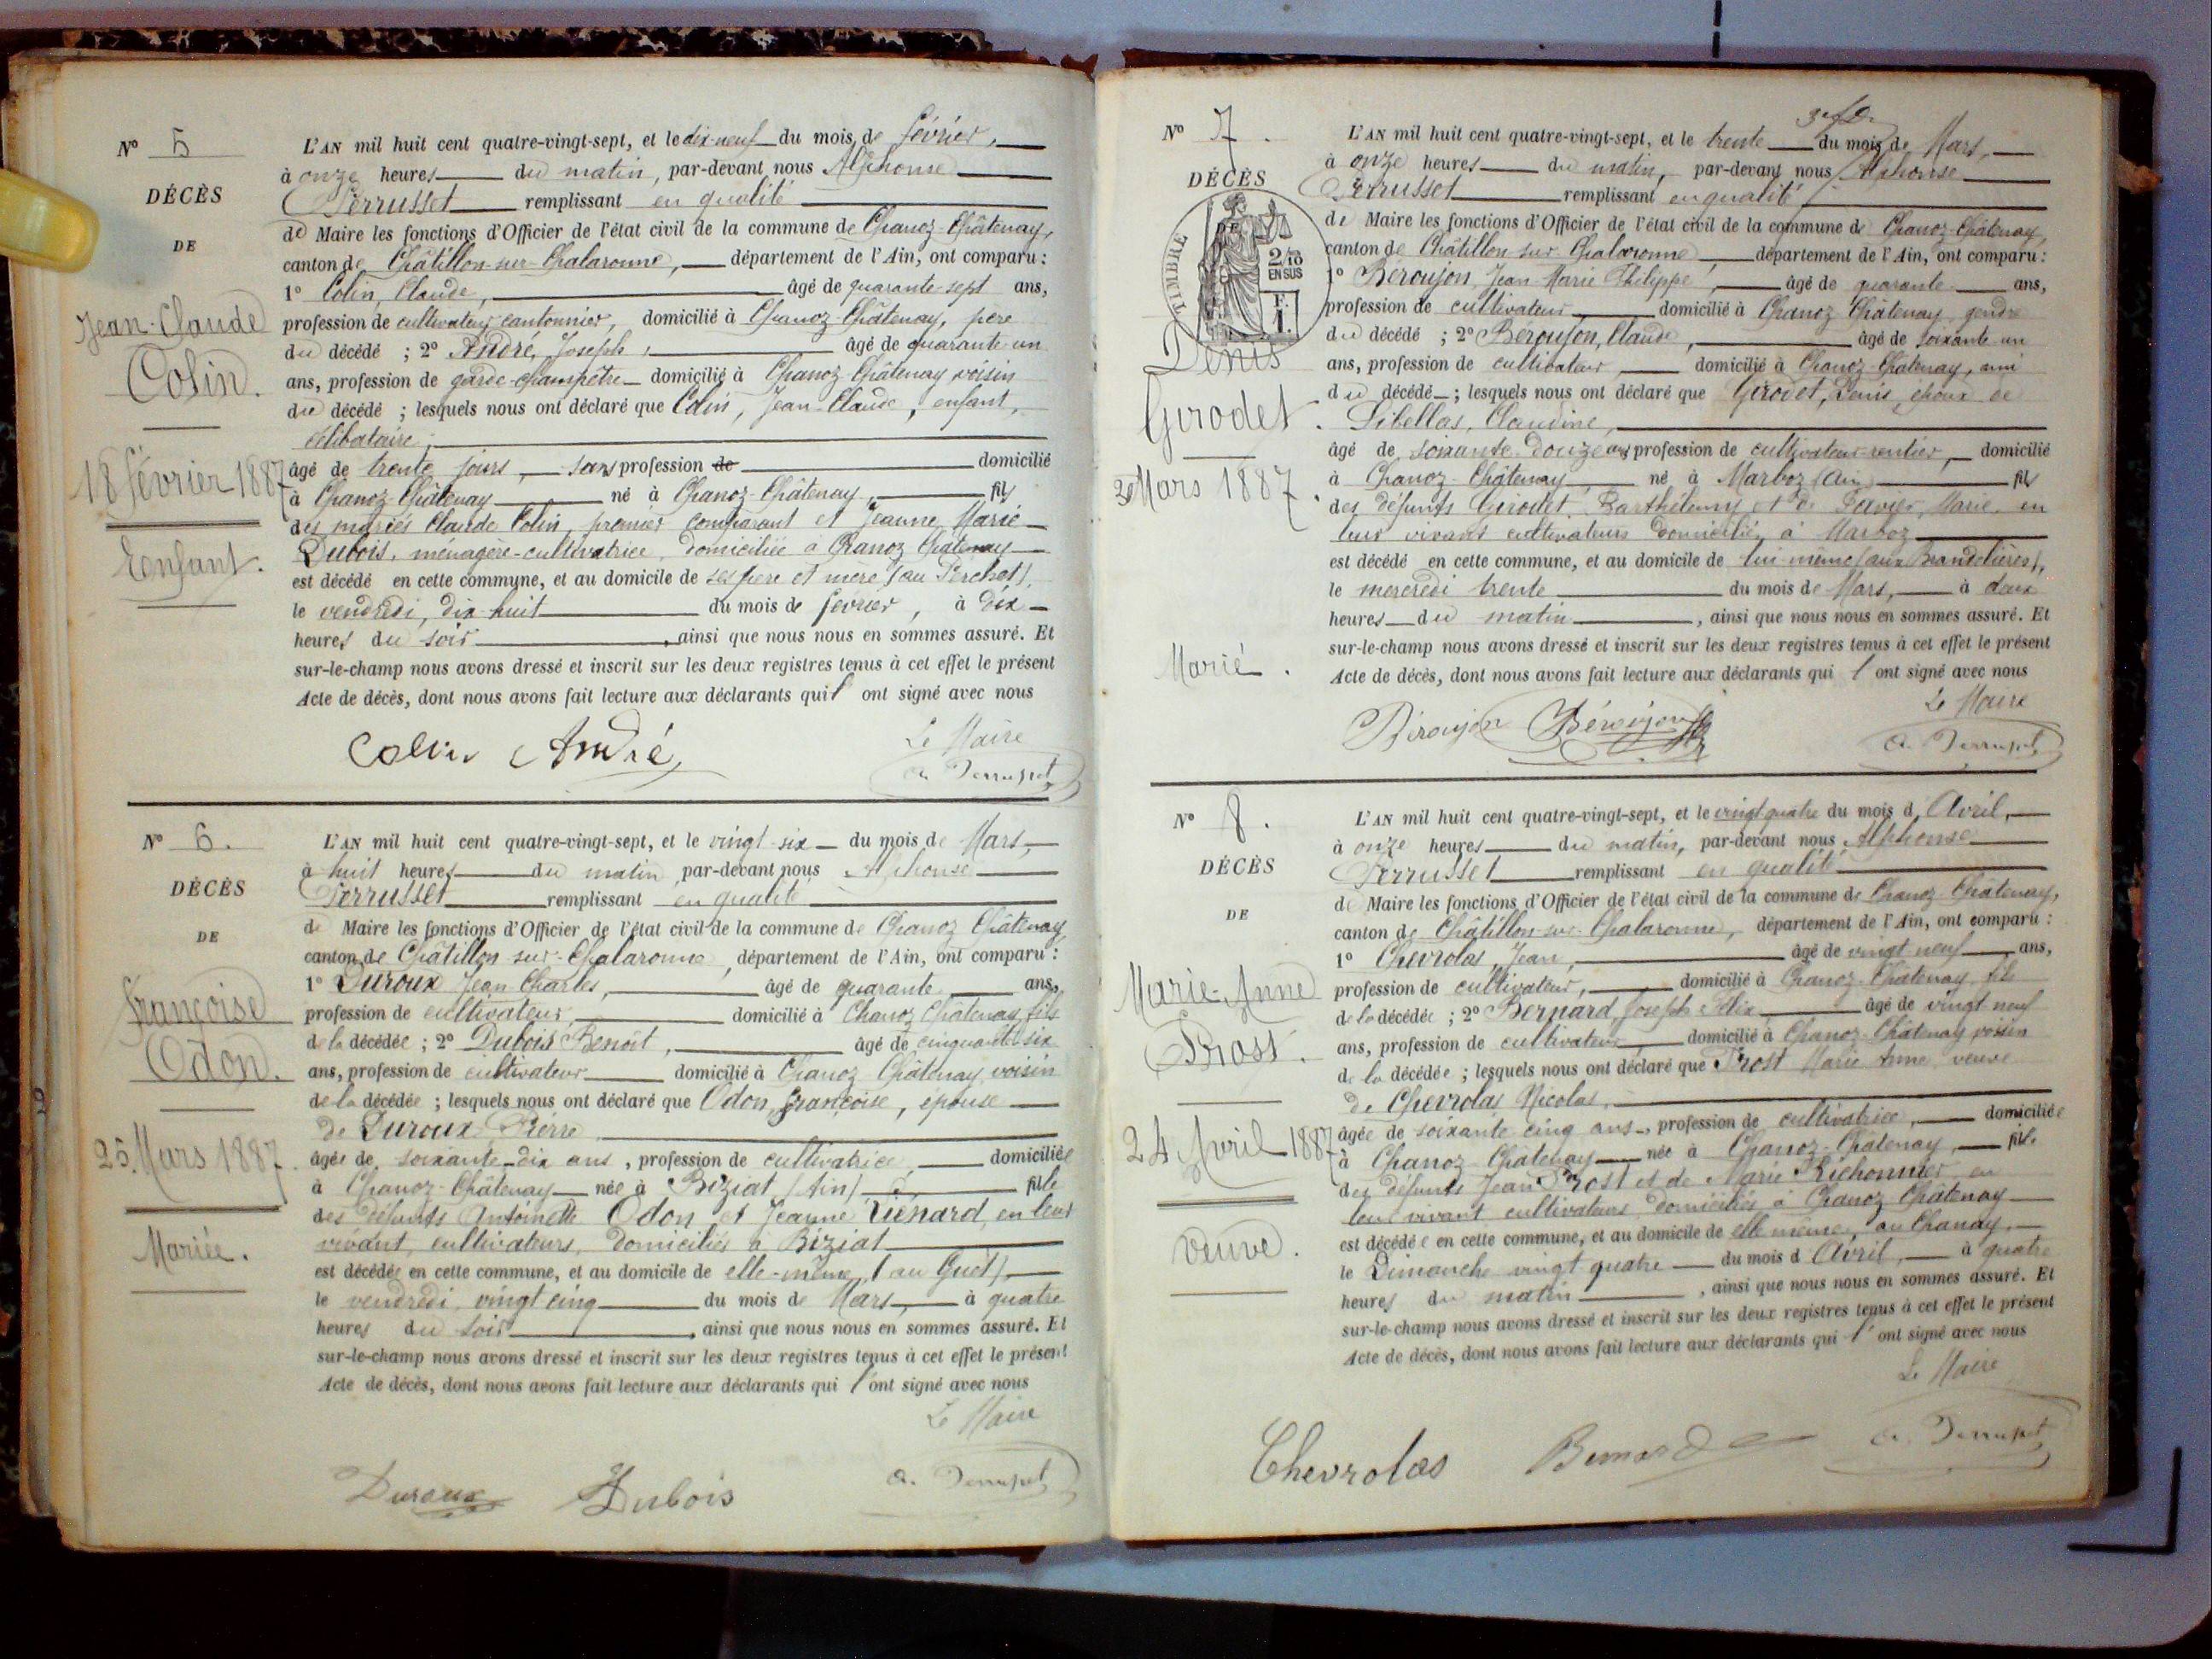 N° 5
DÉCÈS
DE
Jean-Claude
Colin.
18 février 1887
Enfant.
L'AN mil huit cent quatre-vingt-sept, et le dix-neuf du mois de février,
à onze heures du matin, par-devant nous Alphonse
Perrusset remplissant en qualité
de Maire les fonctions d'Officier de l'état civil de la commune de Chanoz-Châtenay,
canton de Châtillon-sur-Chalaronne, département de l'Ain, ont comparu :
1° Colin, Claude, âgé de quarante-sept ans,
profession de cultivateur cantonnier, domicilié à Chanoz-Châtenay, père
du décédé ; 2° André, Joseph, âgé de quarante-un
ans, profession de garde-champêtre domicilié à Chanoz-Châtenay voisin
du décédé ; lesquels nous ont déclaré que Colin, Jean-Claude, enfant,
célibataire,
âgé de trente jours, sans profession de domicilié
à Chanoz-Châtenay né à Chanoz-Châtenay, fils
des mariés Claude Colin, premier comparant et Jeanne Marie
Dubois, ménagère-cultivatrice, domiciliée à Chanoz Châtenay
est décédé en cette commune, et au domicile de ses père et mère (au Perchot),
le vendredi, dix-huit du mois de février, à dix
heures du soir, ainsi que nous nous en sommes assuré. Et
sur-le-champ nous avons dressé et inscrit sur les deux registres tenus à cet effet le présent
Acte de décès, dont nous avons fait lecture aux déclarants qui l'ont signé avec nous
Le Maire
Colin André A. Perrusset
N° 6.
DÉCÈS
DE
Françoise
Odon.
25 Mars 1887.
Mariée.
L'AN mil huit cent quatre-vingt-sept, et le vingt-six du mois de Mars,
à huit heures du matin par-devant nous Alphonse
Perrusset remplissant en qualité
de Maire les fonctions d'Officier de l'état civil de la commune de Chanoz Châtenay
canton de Châtillon-sur-Chalaronne, département de l'Ain, ont comparu :
1° Duroux Jean Charles, âgé de quarante ans,
profession de cultivateur, domicilié à Chanoz Châtenay, fils
de la décédée ; 2° Dubois Benoit, âgé de cinquante-six
ans, profession de cultivateur domicilié à Chanoz Châtenay voisin
de la décédée ; lesquels nous ont déclaré que Odon, françoise, épouse
de Duroux Pierre
âgée de soixante-dix ans, profession de cultivatrice, domiciliée
à Chanoz-Châtenay née à Biziat (Ain), fille
des défunts Antoinette Odon et Jeanne Viénard, en leur
vivant, cultivateurs, domiciliés à Biziat
est décédée en cette commune, et au domicile de elle-même, (au Guet),
le vendredi, vingt cinq du mois de Mars, à quatre
heures du soir, ainsi que nous nous en sommes assuré. Et
sur-le-champ nous avons dressé et inscrit sur les deux registres tenus à cet effet le présent
Acte de décès, dont nous avons fait lecture aux déclarants qui l'ont signé avec nous
Le Maire
Duroux Dubois A. Perrusset
N° 7.
DÉCÈS
TIMBRE
2/10
EN SUS
Denis
Girodet.
30 Mars 1887
Marié.
L'AN mil huit cent quatre-vingt-sept, et le trente du mois de Mars,
à onze heures du matin, par-devant nous Alphonse
Perrusset remplissant en qualité
de Maire les fonctions d'Officier de l'état civil de la commune de Chanoz-Châtenay,
canton de Châtillon-sur-Chalaronne, département de l'Ain, ont comparu :
1° Beroujon, Jean Marie Philippe, âgé de quarante ans,
profession de cultivateur domicilié à Chanoz Châtenay, gendre
du décédé ; 2° Béroujon, Claude, âgé de soixante-un
ans, profession de cultivateur, domicilié à Chanoz-Châtenay, ami
du décédé ; lesquels nous ont déclaré que Girodet, Denis, époux de
Sibellas, Claudine,
âgé de soixante-douze ans profession de cultivateur-rentier, domicilié
à Chanoz-Châtenay né à Marboz (Ain) fils
des défunts Girodet, Barthélemy et de Favier, Marie, en
leur vivant cultivateurs domiciliés à Marboz
est décédé en cette commune, et au domicile de lui-même (aux Brandelières),
le mercredi trente du mois de Mars, à deux
heures du matin, ainsi que nous nous en sommes assuré. Et
sur-le-champ nous avons dressé et inscrit sur les deux registres tenus à cet effet le présent
Acte de décès, dont nous avons fait lecture aux déclarants qui l'ont signé avec nous
Le Maire
Béroujon Béroujon A. Perrusset
N° 8.
DÉCÈS
DE
Marie-Anne
Prost.
24 Avril 1887
Veuve.
L'AN mil huit cent quatre-vingt-sept, et le vingt quatre du mois d'Avril,
à onze heures du matin, par-devant nous Alphonse
Perrusset remplissant en qualité
de Maire les fonctions d'Officier de l'état civil de la commune de Chanoz-Châtenay,
canton de Châtillon-sur-Chalaronne, département de l'Ain, ont comparu :
1° Chevrolas, Jean, âgé de vingt neuf ans,
profession de cultivateur, domicilié à Chanoz-Châtenay, fils
de la décédée ; 2° Bernard, Joseph Félix, âgé de vingt neuf
ans, profession de cultivateur, domicilié à Chanoz-Châtenay voisin
de la décédée ; lesquels nous ont déclaré que Prost Marie Anne, veuve
de Chevrolas Nicolas,
âgée de soixante cinq ans, profession de cultivatrice, domiciliée
à Chanoz Châtenay née à Chanoz-Châtenay, fille
des défunts Jean Prost et de Marie Richonnier en
leur vivant cultivateurs, domiciliés à Chanoz Châtenay
est décédée en cette commune, et au domicile de elle même, au Chanay,
le Dimanche vingt quatre du mois d'Avril, à quatre
heures du matin, ainsi que nous nous en sommes assuré. Et
sur-le-champ nous avons dressé et inscrit sur les deux registres tenus à cet effet le présent
Acte de décès, dont nous avons fait lecture aux déclarants qui l'ont signé avec nous
Le Maire
Chevrolas Bernard A. Perrusset